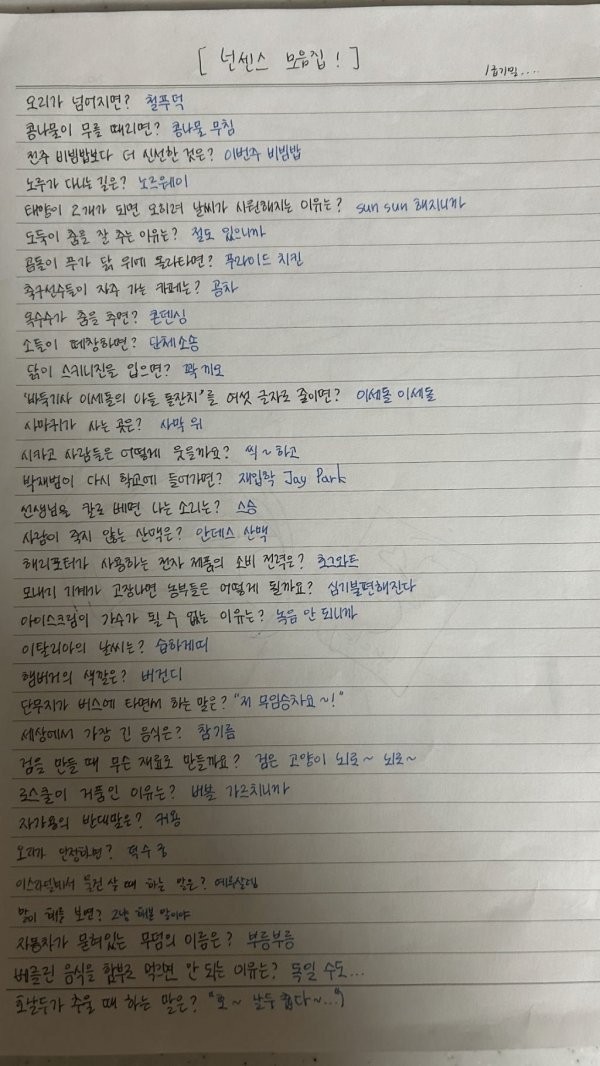 [ 넌센스 모음집! ]
1급기밀....
오리가 넘어지면? 철푸덕
콩나물이 무를 때리면? 콩나물 무침
전주 비빔밥보다 더 신선한 것은? 이번주 비빔밥
노루가 다니는 길은? 노르웨이
태양이 2개가 되면 오히려 날씨가 시원해지는 이유는? sun sun 해지니까
도둑이 춤을 잘 추는 이유는? 절도 있으니까
곰돌이 푸가 닭 위에 올라타면? 푸라이드 치킨
축구선수들이 자주 가는 카페는? 공차
옥수수가 춤을 추면? 콘덴싱
소들이 떼창하면? 단체소송
닭이 스키니진을 입으면? 꽉끼오
'바둑기사 이세돌의 아들 돌잔치'를 여섯 글자로 줄이면? 이세돌 이세돌
사마귀가 사는 곳은? 사막 위
시카고 사람들은 어떻게 웃을까요? 씩~하고
박재범이 다시 학교에 들어가면? 재입학 Jay Park
선생님을 칼로 베면 나는 소리는? 스승
사람이 죽지 않는 산맥은? 안데스 산맥
해리포터가 사용하는 전자 제품의 소비 전력은? 호그와트
모내기 기계가 고장나면 농부들은 어떻게 될까요? 심기불편해진다
아이스크림이 가수가 될 수 없는 이유는? 녹음 안 되니까
이탈리아의 날씨는? 습하게띠
햄버거의 색깔은? 버건디
단무지가 버스에 타면서 하는 말은? "저 무임승차요~!"
세상에서 가장 긴 음식은? 참기름
검을 만들 때 무슨 재료로 만들까요? 검은 고양이 뇌로~ 뇌로~
로스쿨이 거품인 이유는? 버블 가르치니까
자가용의 반대말은? 커용
오리가 단정하면? 덕수궁
이스라엘에서 물건 살 때 하는 말은? 예루살렘
말이 해를 보면? 그냥 해본 말이야
자동차가 묻혀있는 무덤의 이름은? 부릉부릉
베를린 음식을 함부로 먹으면 안 되는 이유는? 독일 수도...
호날두가 추울 때 하는 말은? "호~ 날두 춥다~..."